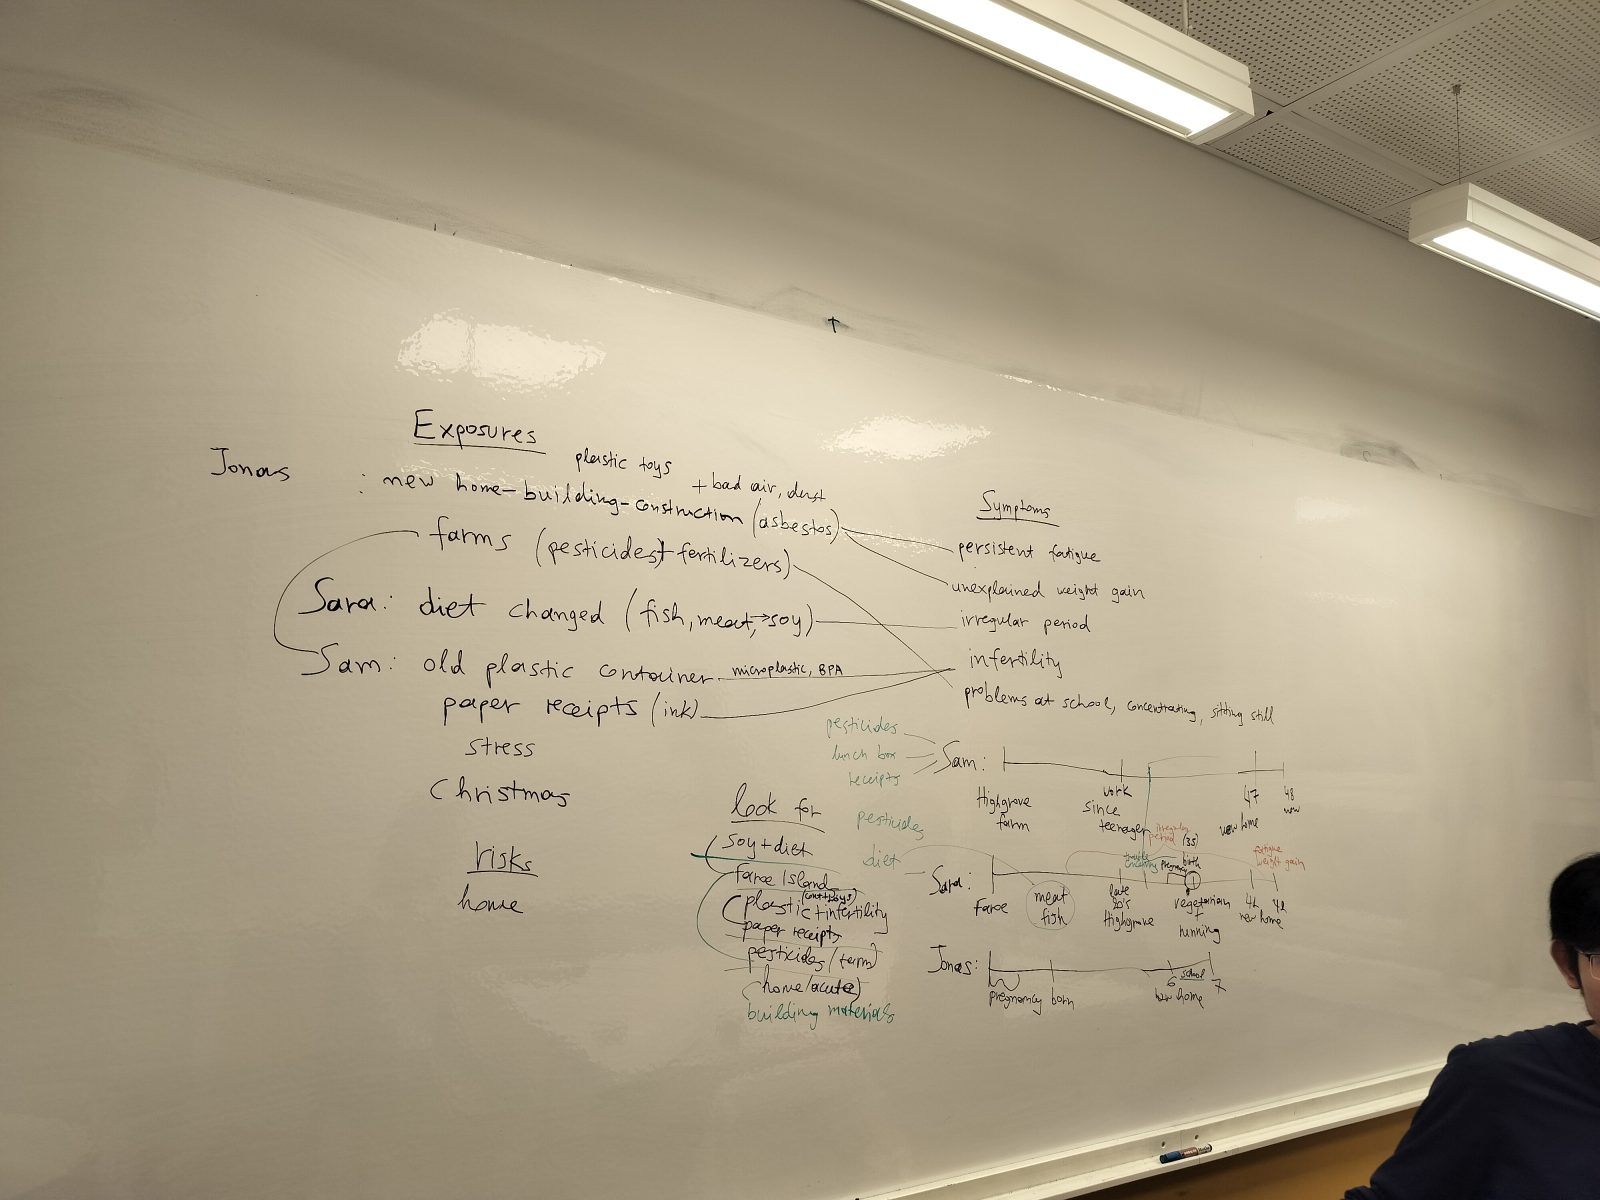 Exposures
plastic toys
Jonas : new home-building-construction (asbestos)
+ bad air, dust
farms (pesticides + fertilizers)
Sara: diet changed (fish, meat, → soy)
Sam: old plastic container
microplastic, BPA
paper receipts (ink)
stress
Christmas
risks
home
Symptoms
persistent fatigue
unexplained weight gain
irregular period
infertility
problems at school, concentrating, sitting still
look for
soy + diet
faroe Island
plastic + infertility
paper receipts
pesticides (farm)
home (acute)
building materials
pesticides
lunch box
receipts
Sam:
Highgrove
farm
work
since
teenager
47
new home
48
now
pesticides
diet
Sara:
Faroe
meat
fish
late
20's
Highgrove
irregular
period (35)
pregnancy
birth
vegetarian
+
running
fatigue
weight gain
new home
Jonas:
pregnancy born
6 school 7
new home